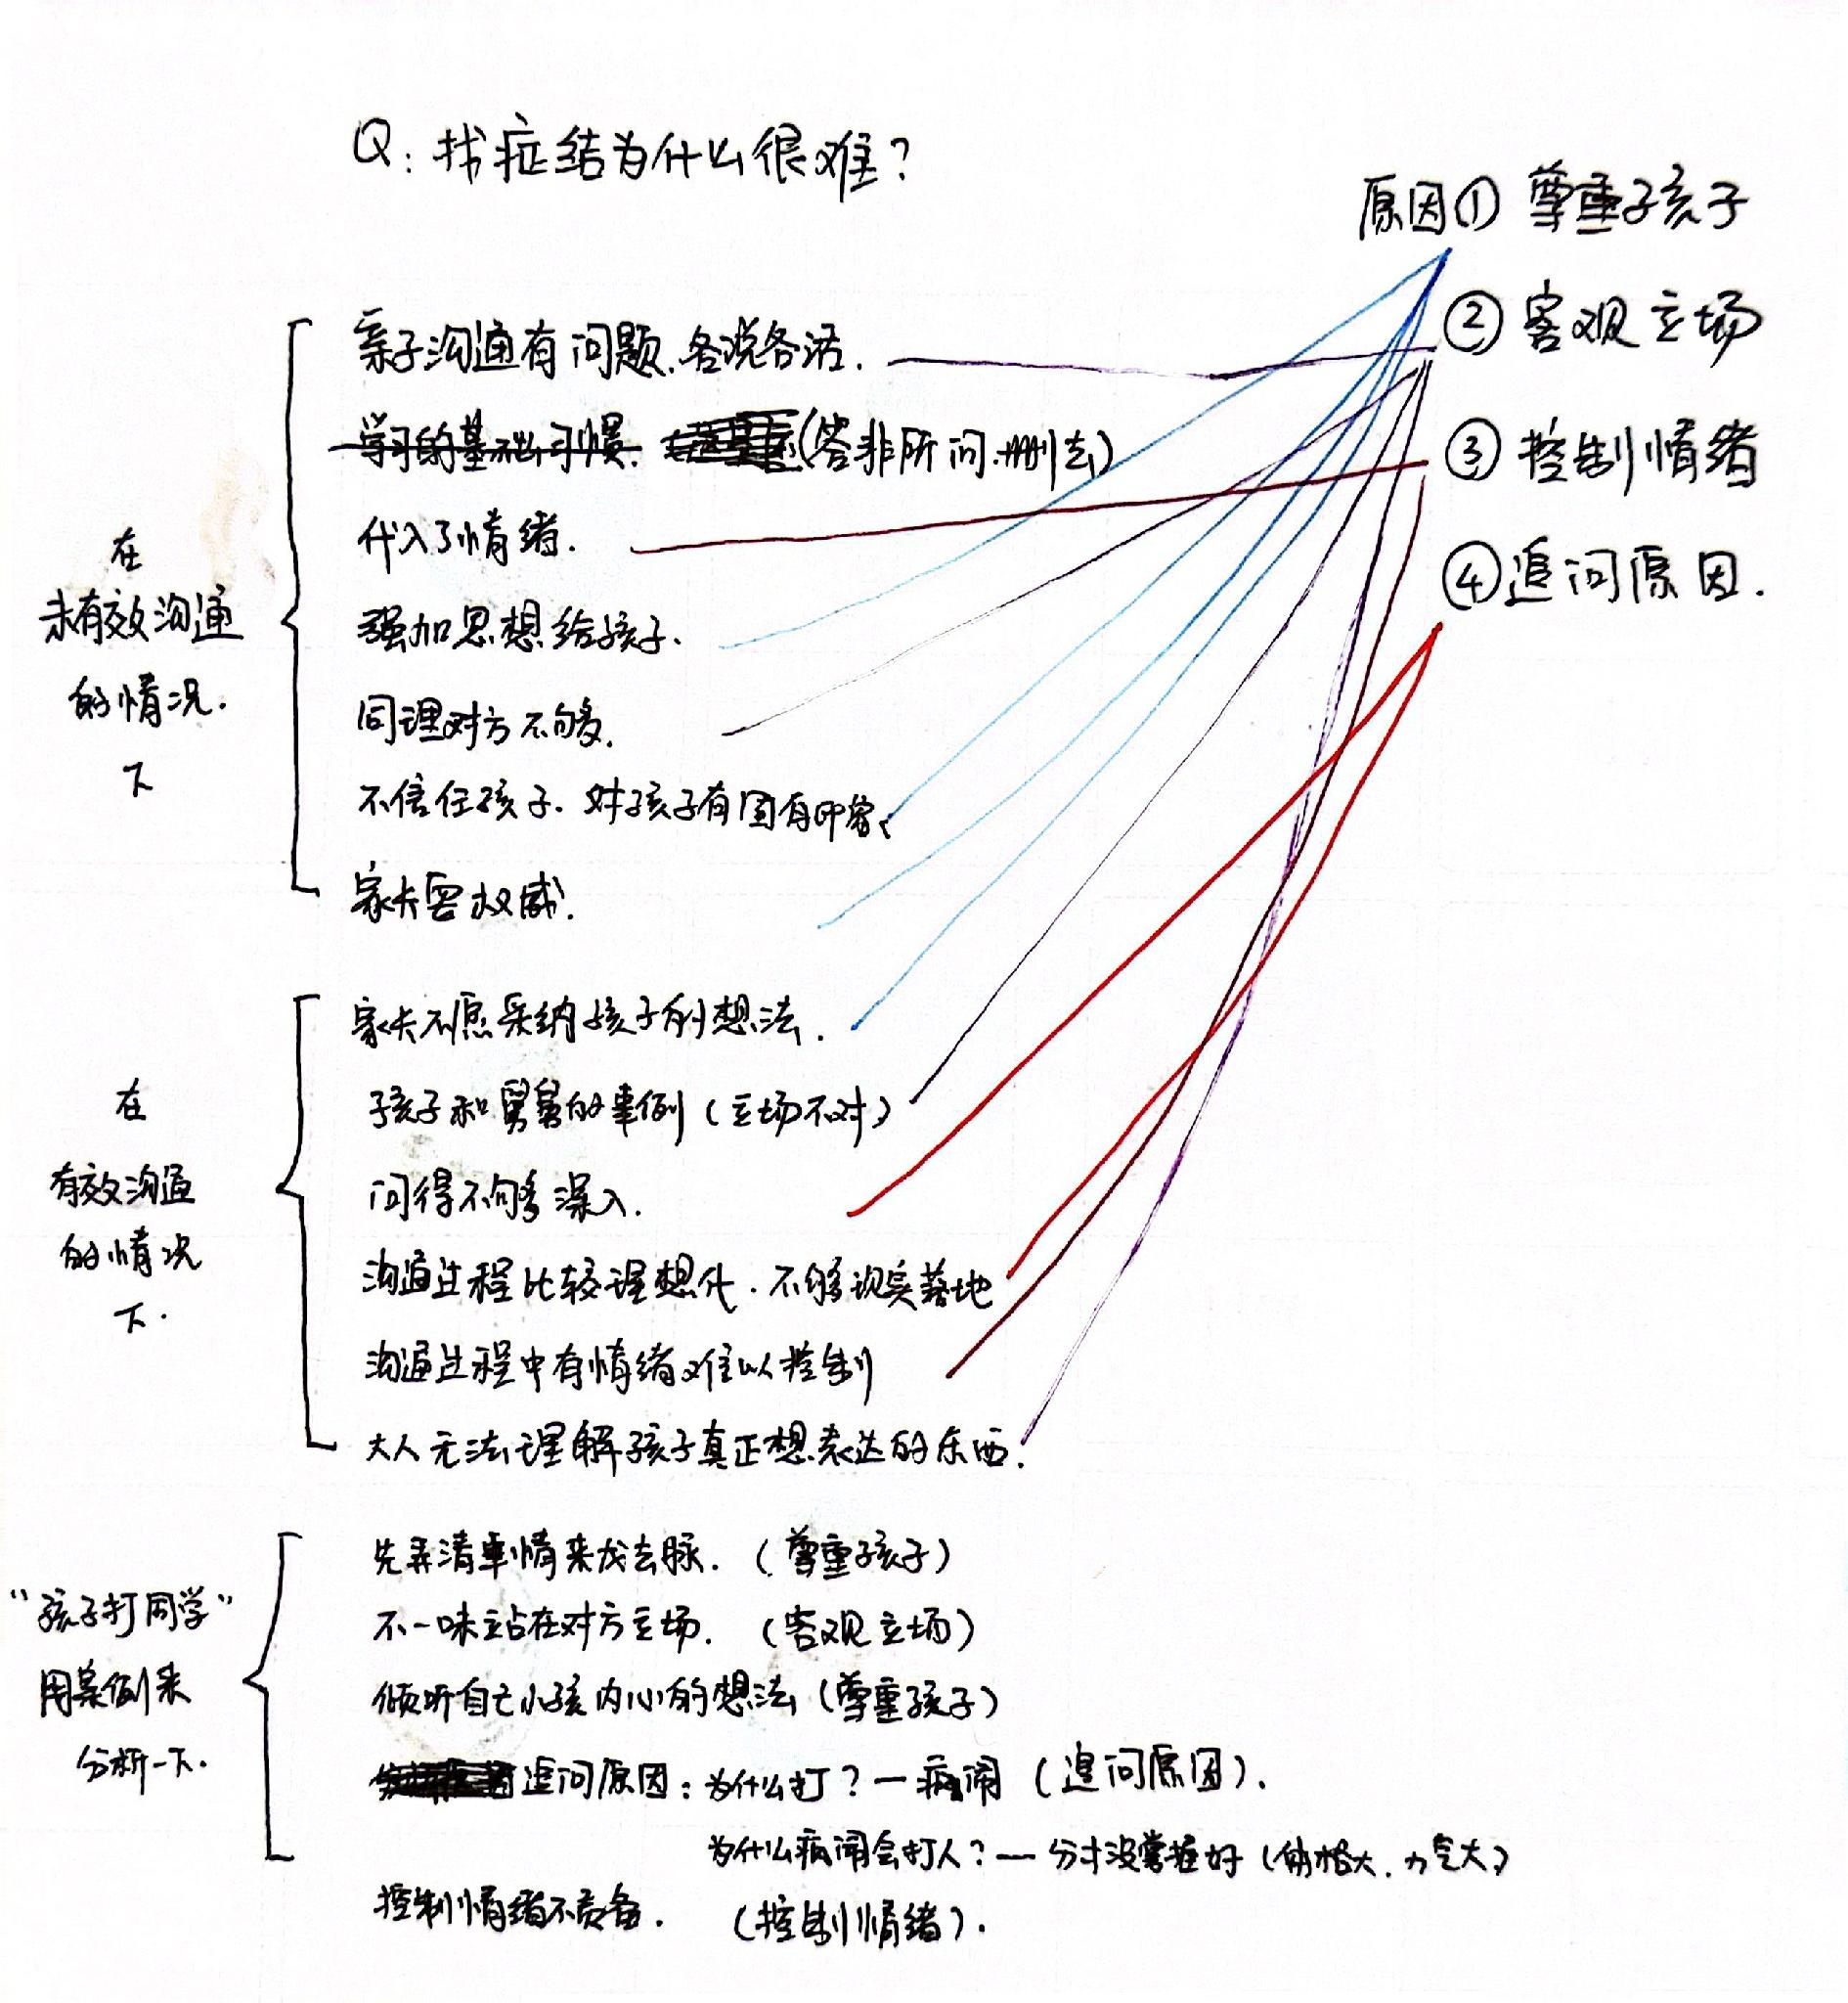 Q：找症结为什么很难？
原因① 尊重孩子
② 客观立场
③ 控制情绪
④ 追问原因.
在
未有效沟通
的情况.
下
亲子沟通有问题.各说各话.
学习的基础习惯. (答非所问.删去)
代入了情绪.
强加思想给孩子.
同理对方不够.
不信任孩子. 对孩子有固有印象、
家长要权威.
在
有效沟通
的情况
下.
家长不愿采纳孩子的想法.
孩子和舅舅的事例（立场不对）
问得不够深入.
沟通过程比较理想化. 不够现实落地
沟通过程中有情绪难以控制
大人无法理解孩子真正想表达的东西.
“孩子打同学”
用案例来
分析一下.
先弄清事情来龙去脉.（尊重孩子）
不一味站在对方立场.（客观立场）
倾听自己小孩内心的想法（尊重孩子）
追问原因：为什么打？— 疯闹（追问原因）.
为什么疯闹会打人？— 分寸没掌握好（体格大. 力气大）
控制情绪不责备. （控制情绪）.